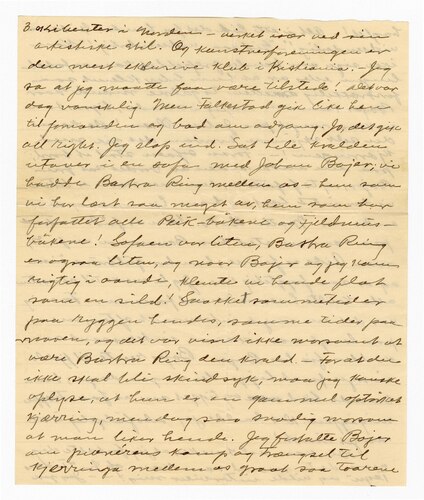 3. skribenter i Norden – virket især ved sin
artistiske stil. Og kunstnerforeningen er
den mest eklusive klub i Kristiania. – Jeg
sa at jeg maatte faa være tilstede! Det var
dog vanskelig. Men Falkstad gik like hen
til formanden og bad om adgang. Jo, det gik
all right. Jeg slap ind. Sat hele kvelden
utover i en sofa med Johan Bojer; vi
hadde Barbra Ring mellem os – hun som
vi har læst saa meget av, hun som har
forfattet alle Peik-bøkene og Fjeldmus-
bøkene! Sofaen var liten, Barbra Ring
er ogsaa liten, og naar Bojer og jeg kom
rigtig i aande, klemte vi hende flat
som en sild! Saa akket sommetider
paa ryggen hendes, somme tider paa
maven, og det var visst ikke morsomt at
være Barbra Ring den kveld – For at du
ikke skal bli skindsyk, maa jeg kanske
oplyse, at hun er en gammel opskaket
kjærring, men dog saa snodig morsom
at man liker hende. Jeg fortalte Bojer
om pionerens kamp og trængsel til
kjærringa mellem os graat saa taarene